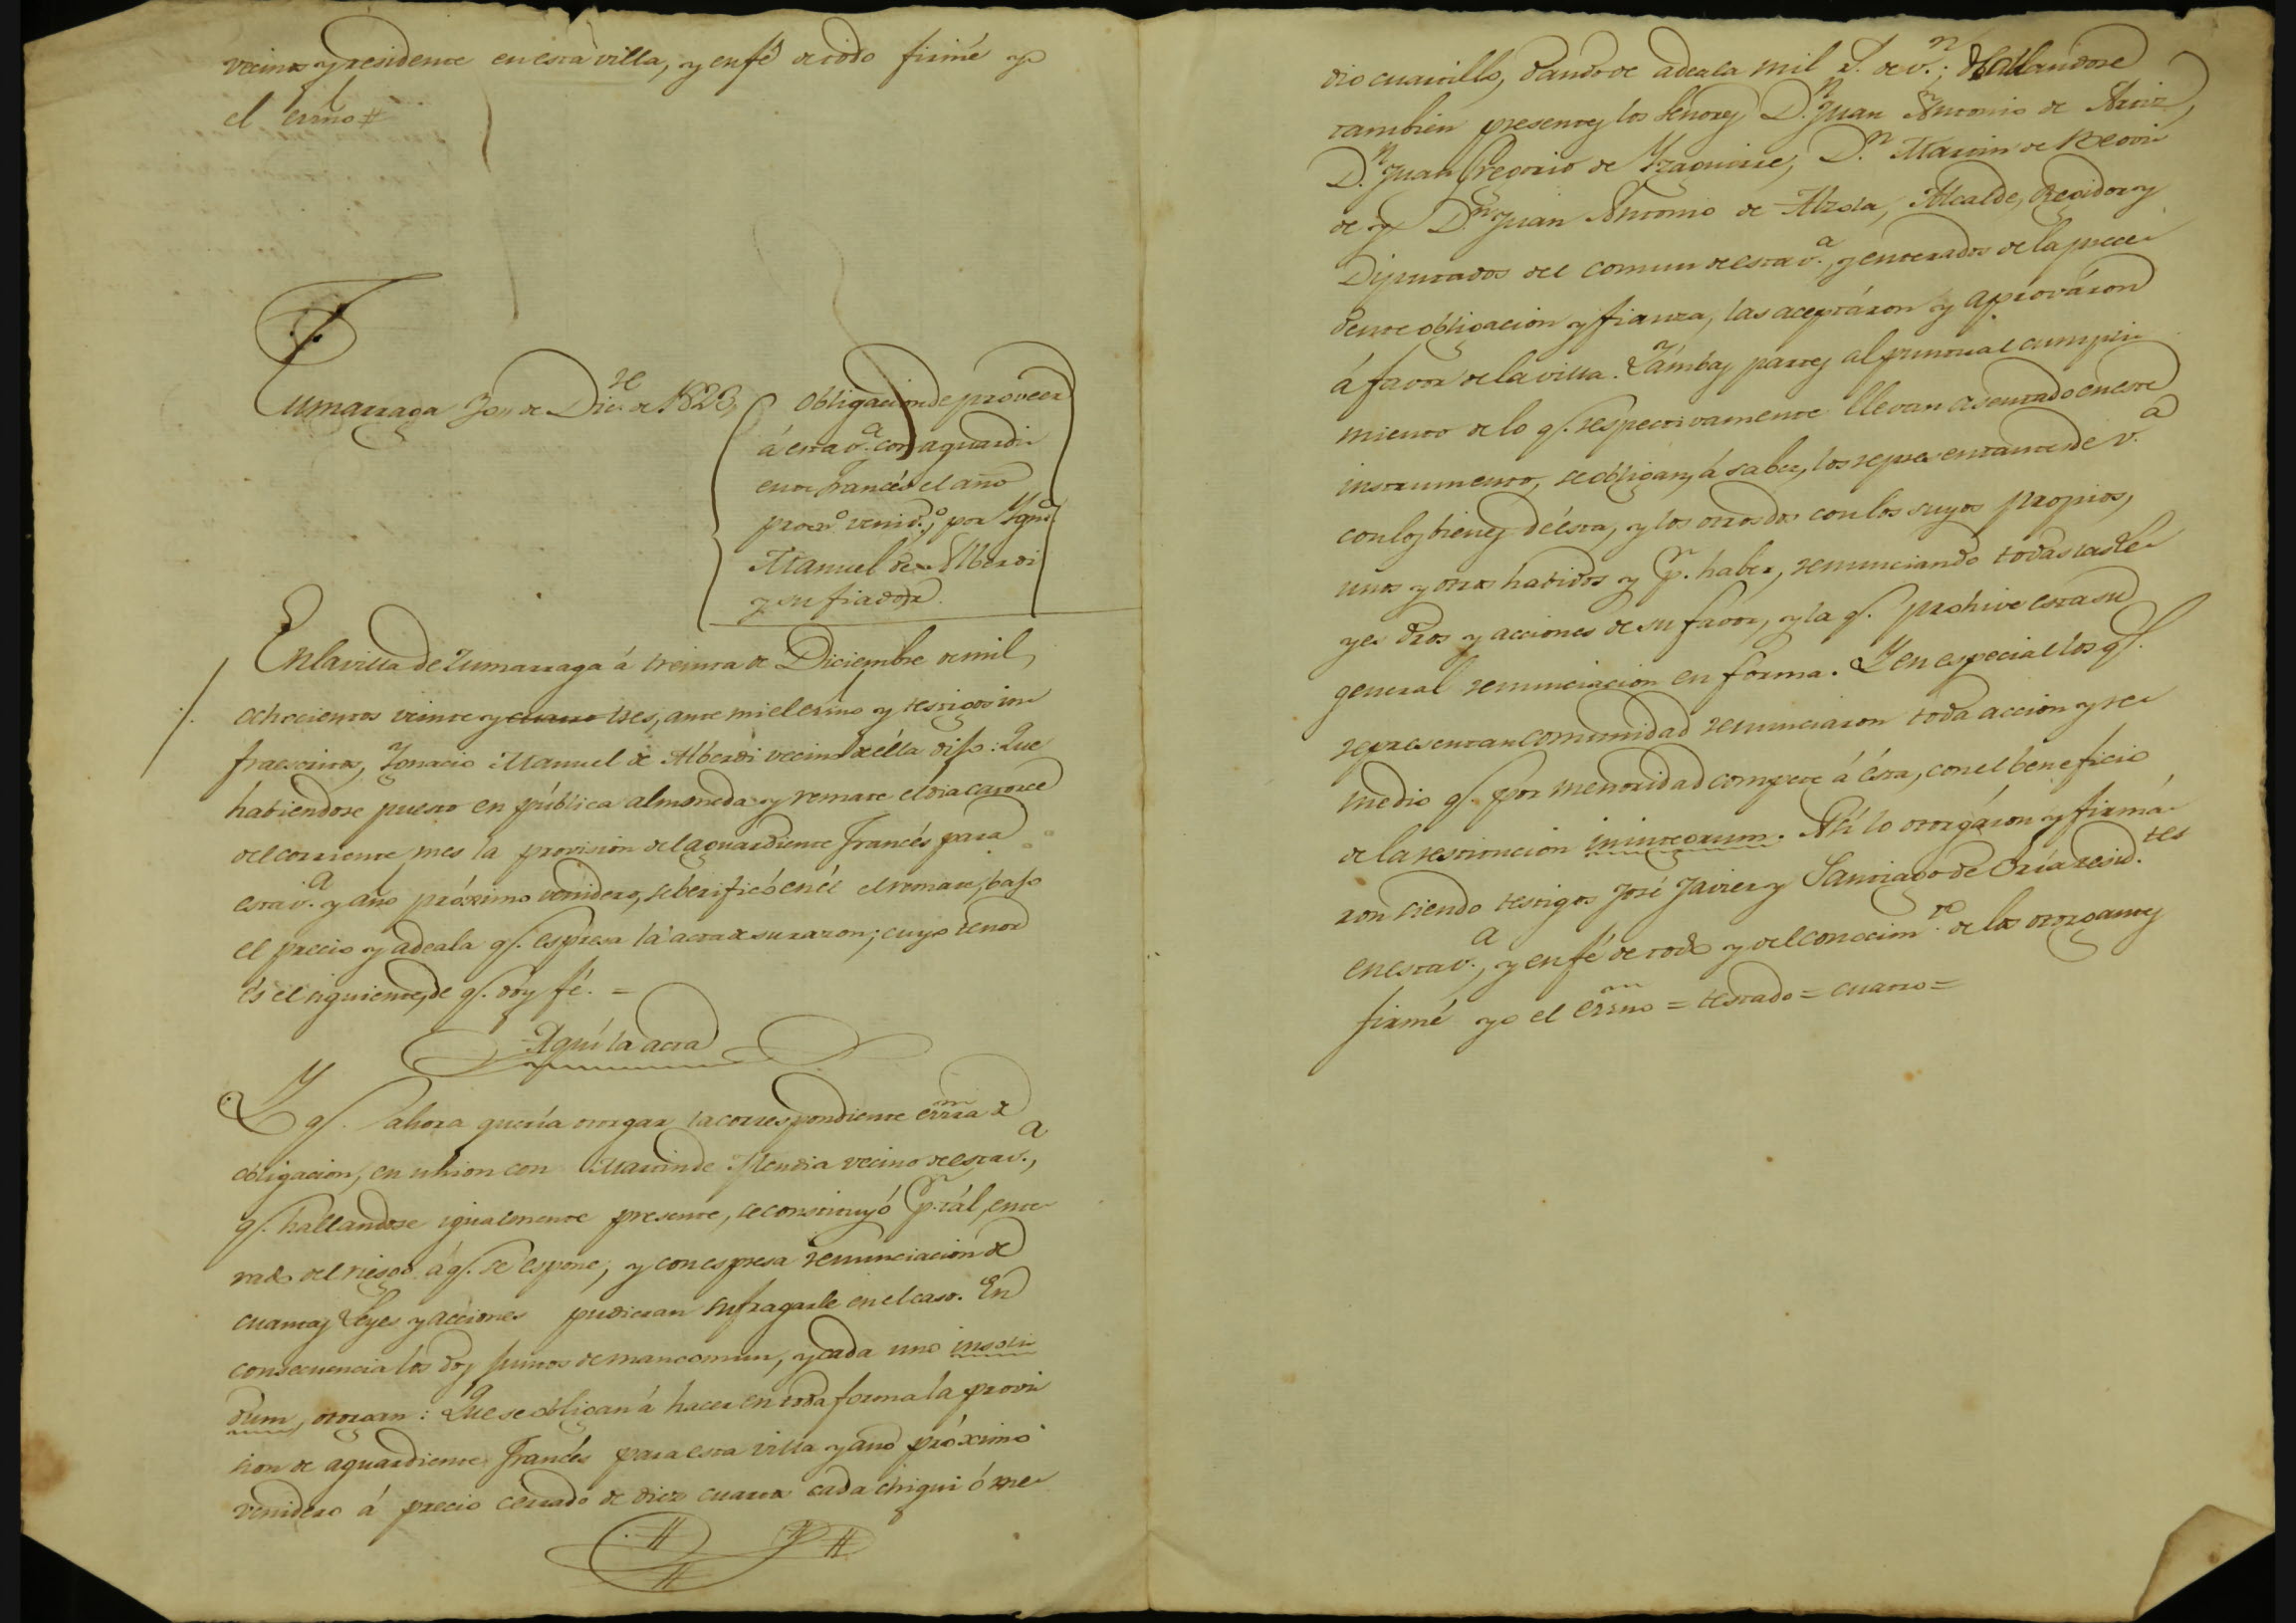 vecinos y residente en esta villa, y en fé de todo firmé yo
el esño #
Zumarraga 30,, de Dic.re de 1823,
Obligacion de proveer
á esta v.a con aguardi-
ente francés el año
procs.o venid.o, por Ygn.o
Manuel de Alberdi
y su fiador.
En la villa de Zumarraga á treinta de Diciembre de mil
ochocientos veinte y cuatro tres, ante mi el esno y testigos in-
fraescritos, Ignacio Manuel de Alberdi vecino de élla dijo: Que
habiendose puesto en pública almoneda y remate el dia catorce
del corriente mes la provision del aguardiente francés para
esta v.a y año próximo venidero, se berificó en él el remate, bajo
el precio y adeala q.e espresa la acta de su razon; cuyo tenor
és el siguiente, de q.e doy fé. =
Aquí la acta
Y q.e ahora quería otorgar la correspondiente esrra de
obligacion, en union con Martin de Mendia vecino de esta v.a,
q.e hallandose igualmente presente, se constituyó p.r tál, ente-
rado del riesgo á q.e se espone; y con espresa renunciacion de
cuantas Leyes y acciones pudieran sufragarle en el caso. En
consecuencia los dos juntos de mancomun, y cada uno insoli-
dum, otorgan: Que se obligan á hacer en toda forma la provi-
sion de aguardiente francés para esta villa y año próximo
venidero á precio cerrado de diez cuartos cada chiqui ó me-
dio cuartillo, dando de adeala mil r.s de v.n; Hallandose
tambien presentes los Señores D.n Juan Antonio de
D.n Juan Gregorio de Yzaguirre, D.n Martin de
de y D.n Juan Antonio de Alzola, Alcalde, Regidor y
Diputados del comun de esta v.a, y enterados de la prece-
dente obligacion y fianza, las aceptáron y aprováron
á favor de la villa. Y ámbas partes al puntual cumpli-
miento de lo q.e respectivamente llevan asentado en este
instrumento, se obligan, á saber, los representantes de v.a
con los bienes de ésta, y los otros dos con los suyos propios,
unos y otros habidos y p.r haber, renunciando todas las Le-
yes dros y acciones de su favor, y la q.e prohive esta su
general renunciacion en forma. Y en especial los q.e
representan comunidad renunciaron toda accion y re-
medio q.e por menoridad compete á ésta, con el beneficio
de la restitucion inintegrum. Asi lo otorgáron y firmá-
ron siendo testigos José Javier y Santiago de Oria resid.tes
en esta v.a, y en fé de todo y del conocim.to de los otorgantes
firmé yo el esno = testado = cuatro =